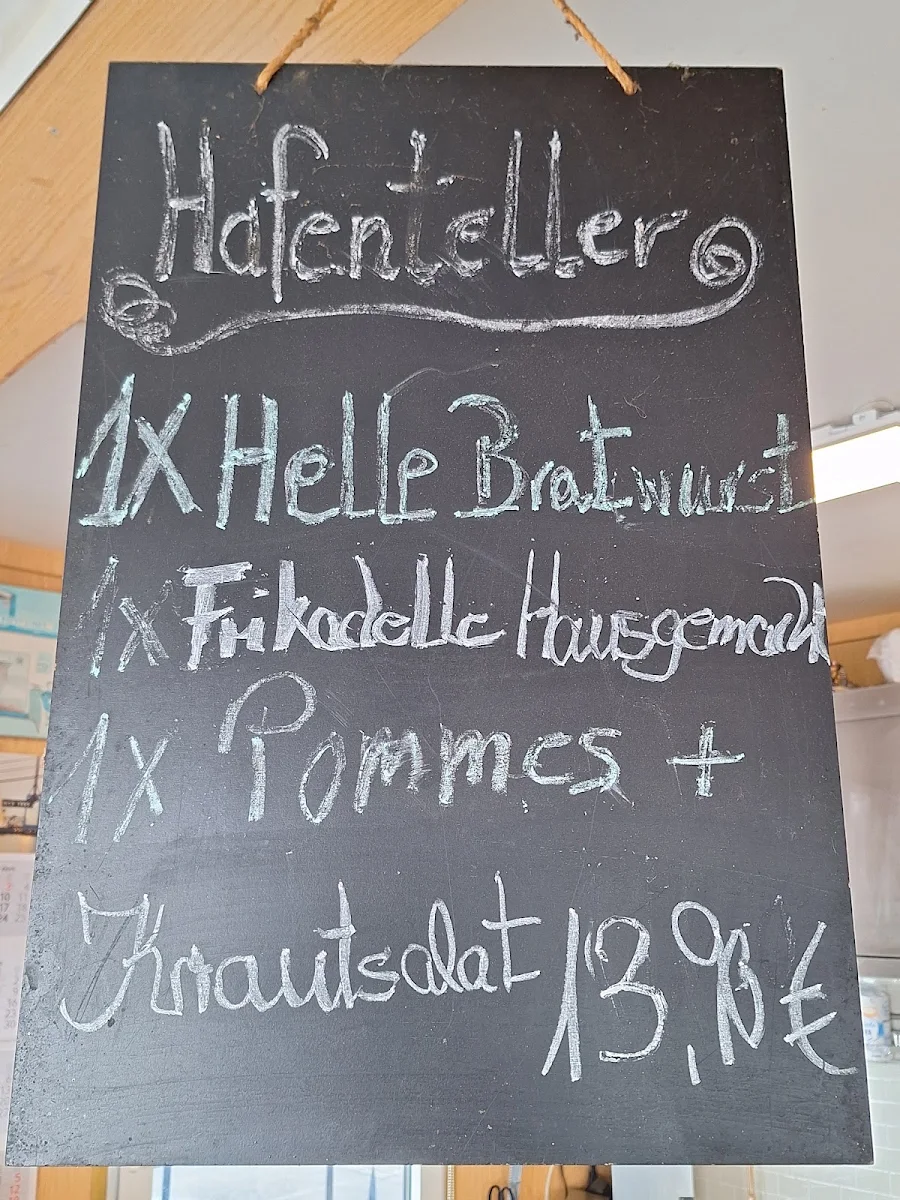 Hafenteller
1X Helle Bratwurst
1x Frikadelle Hausgemacht
1x Pommes +
Krautsalat 13,90 €